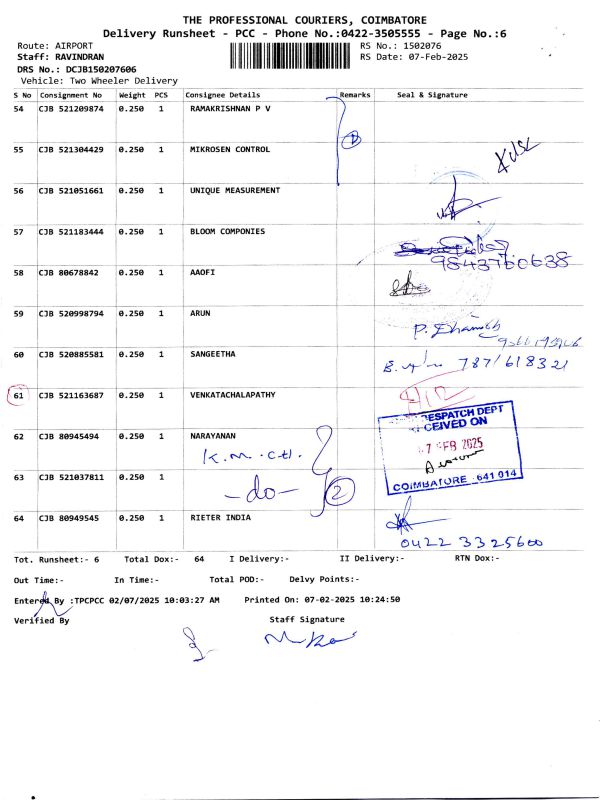 THE PROFESSIONAL COURIERS, COIMBATORE
Delivery Runsheet - PCC - Phone No.:0422-3505555 - Page No.:6
Route: AIRPORT RS No.: 1502076
Staff: RAVINDRAN RS Date: 07-Feb-2025
DRS No.: DCJB150207606
Vehicle: Two Wheeler Delivery
S No Consignment No Weight PCS Consignee Details Remarks Seal & Signature
54 CJB 521209874 0.250 1 RAMAKRISHNAN P V
55 CJB 521304429 0.250 1 MIKROSEN CONTROL
56 CJB 521051661 0.250 1 UNIQUE MEASUREMENT
57 CJB 521183444 0.250 1 BLOOM COMPONIES
9843760638
58 CJB 80678842 0.250 1 AAOFI
59 CJB 520998794 0.250 1 ARUN
60 CJB 520885581 0.250 1 SANGEETHA
7871618321
61 CJB 521163687 0.250 1 VENKATACHALAPATHY
DESPATCH DEPT
RECEIVED ON
7 FEB 2025
COIMBATORE - 641 014
62 CJB 80945494 0.250 1 NARAYANAN
K.M.C.H.
63 CJB 521037811 0.250 1
-do- 2
64 CJB 80949545 0.250 1 RIETER INDIA
0422 3325600
Tot. Runsheet:- 6 Total Dox:- 64 I Delivery:- II Delivery:- RTN Dox:-
Out Time:- In Time:- Total POD:- Delvy Points:-
Entered By :TPCPCC 02/07/2025 10:03:27 AM Printed On: 07-02-2025 10:24:50
Verified By Staff Signature